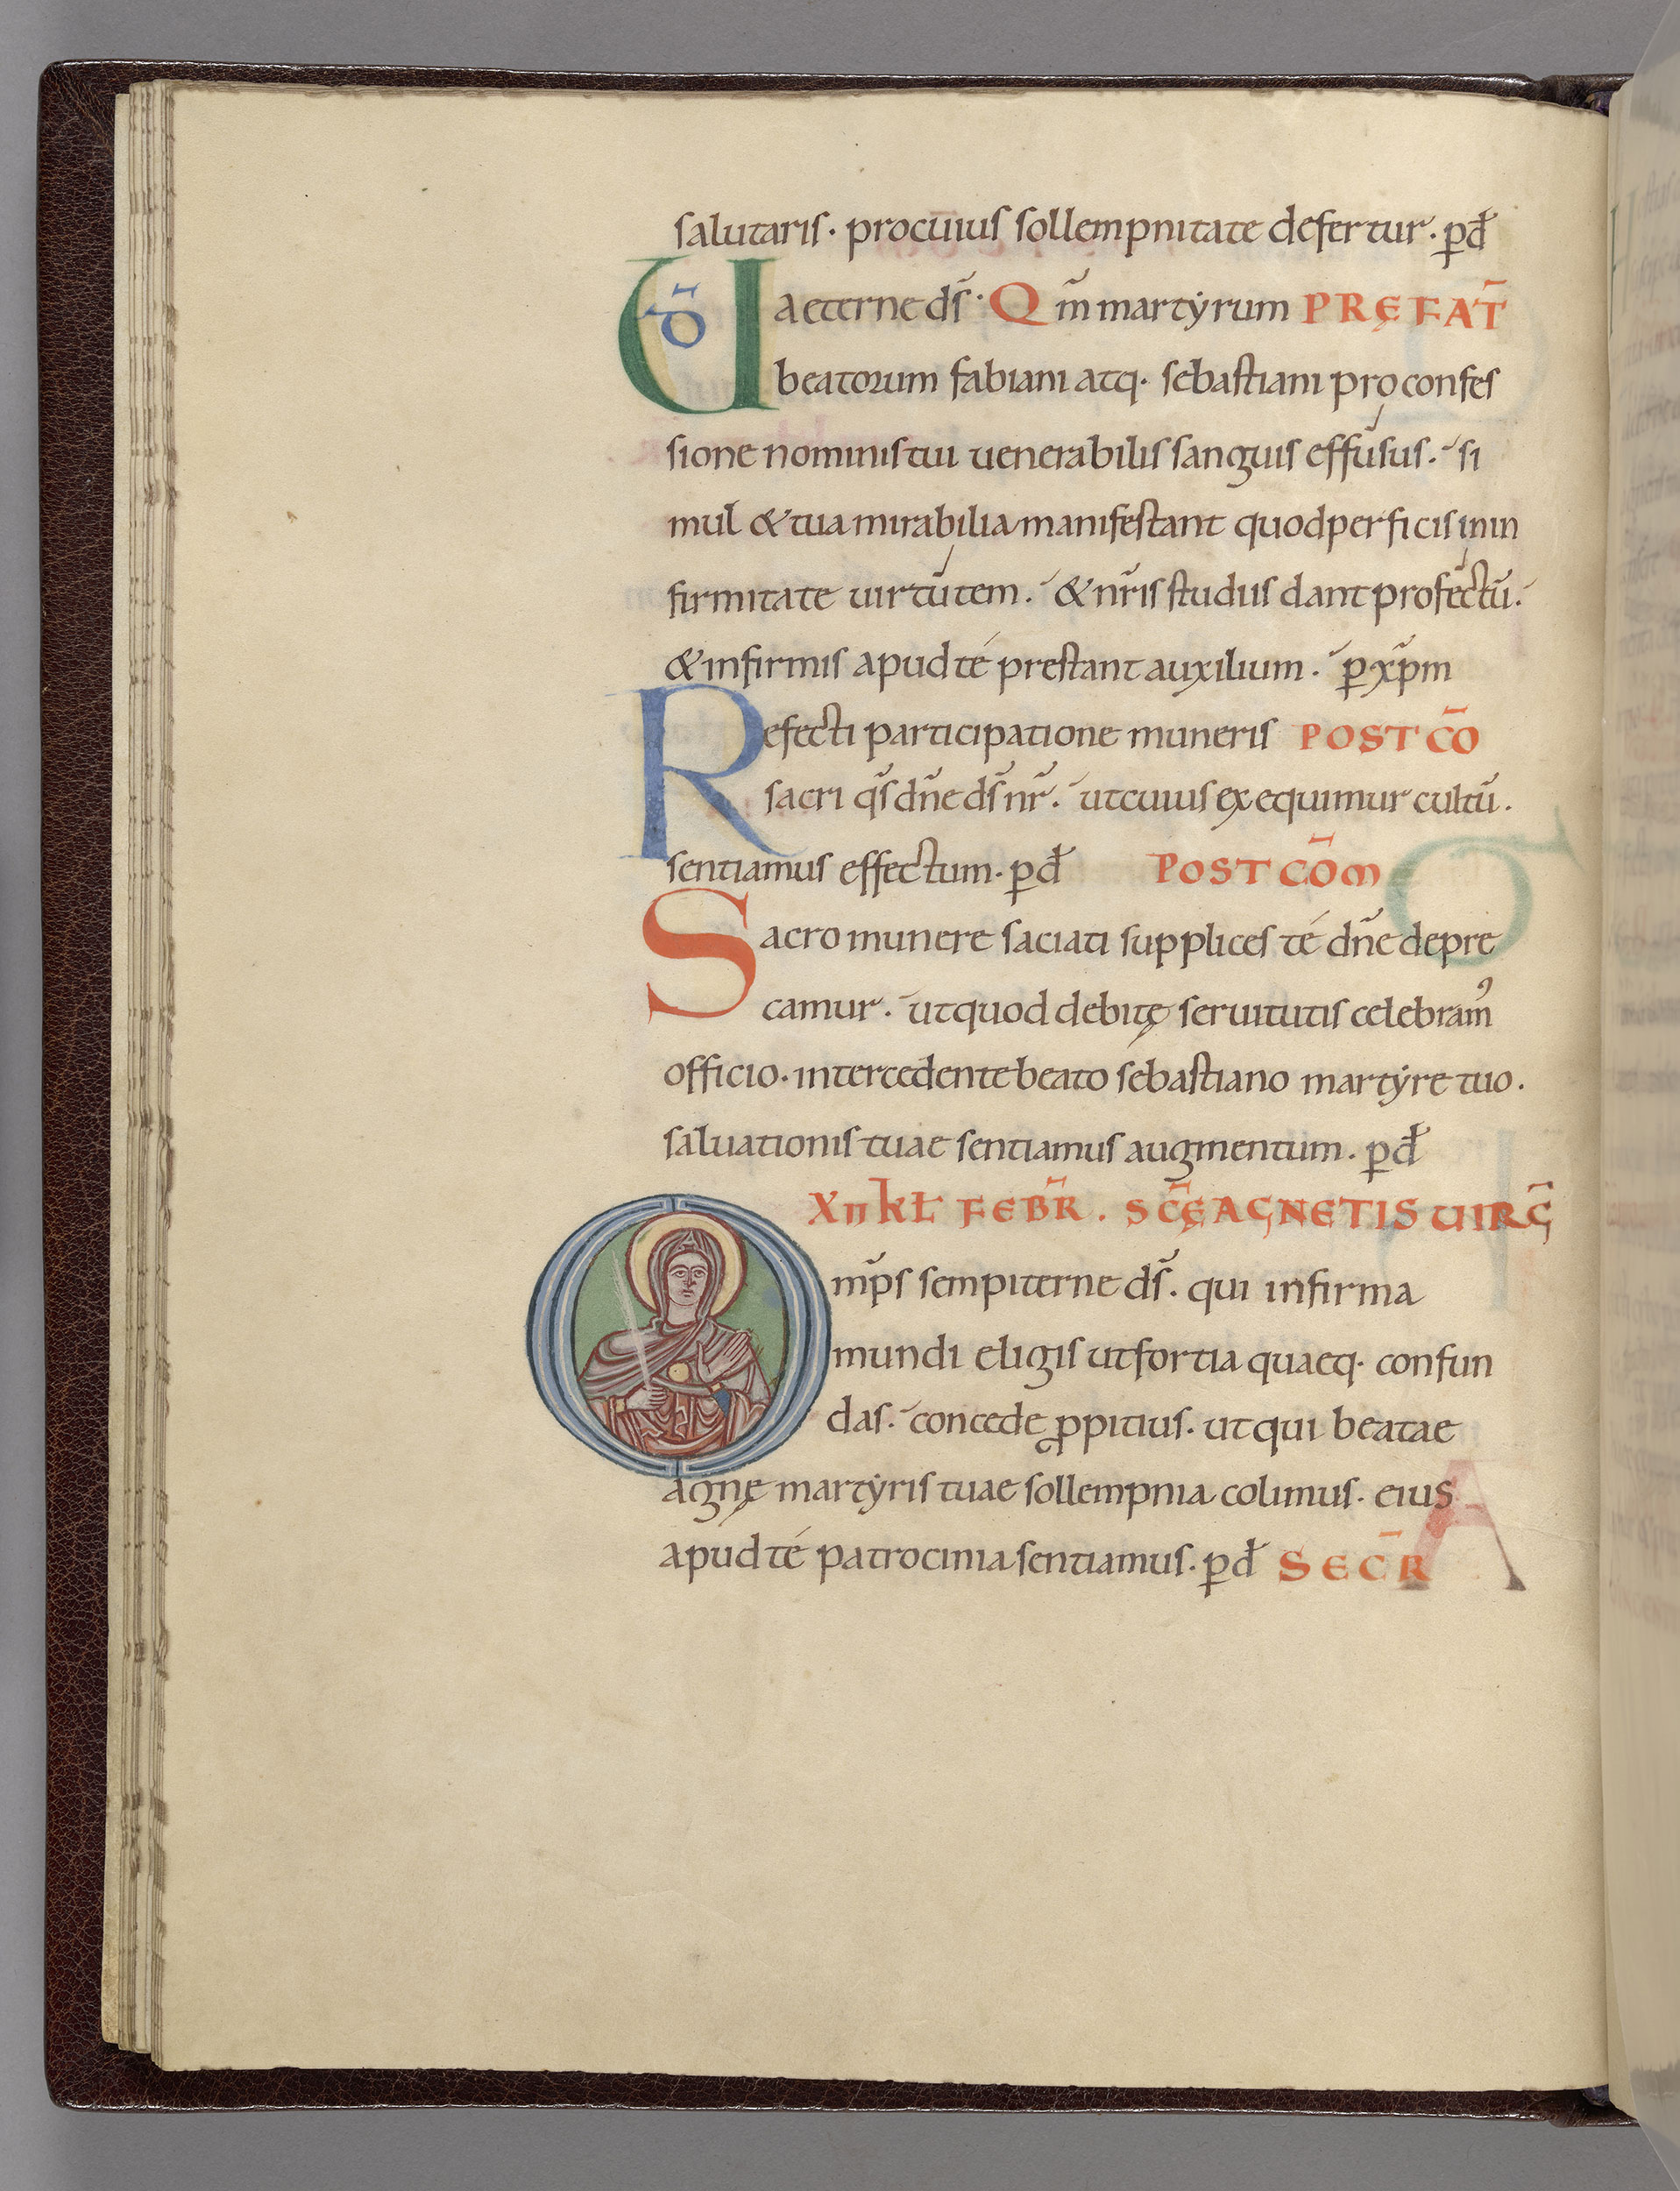 salutaris · procuius sollempnitate defertur · p̱ d̄
UD̄ aeterne d̄s · Qm̄ martẏrum PRĘFAT̄
beatorum fabiani atq· sebastiani pro confes
sione nominis tui uenerabilis sanguis effusus · si
mul & tua mirabilia manifestant quod perficis in in
firmitate uirtutem · & nr̄is studiis dant profectū ·
& infirmis apud té prestant auxilium · p̱ xp̄m
Refecti participatione muneris POST CŌ
sacri qs̄ dn̄e d̄s nr̄ · ut cuius exequimur cultū ·
sentiamus effectum · p̱ d̄ POST CŌM
Sacro munere saciati supplices té dn̄e depre
camur · ut quod debitę seruitutis celebram᾽
officio · intercedente beato sebastiano martẏre tuo ·
saluationis tuae sentiamus augmentum · p̱ d̄
XII KŁ FEBR̄ · SC̄Ę AGNETIS UIRḠ
Omp̄s sempiterne d̄s · qui infirma
mundi eligis ut fortia quaeq· confun
das · concede ꝓpitius · ut qui beatae
agnę martẏris tuae sollempnia colimus · eius
apud té patrocinia sentiamus · p̱ d̄ SEC̄R